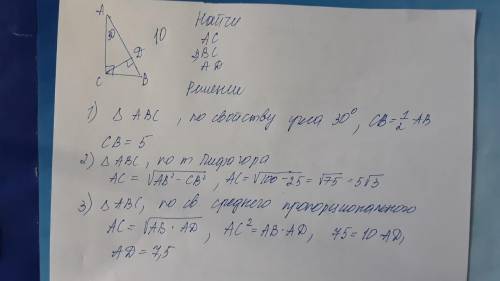 A
30
10
D
C
B
Найти
AC
BC
AD
Решение
1) △ ABC , по свойству угла 30°, CB = 1/2 AB
CB = 5
2) △ABC, по т Пифагора
AC = √AB² - CB² , AC = √100 - 25 = √75 = 5√3
3) △ABC, по св среднего пропорционального
AC = √AB · AD , AC² = AB · AD, 75 = 10 AD,
AD = 7,5